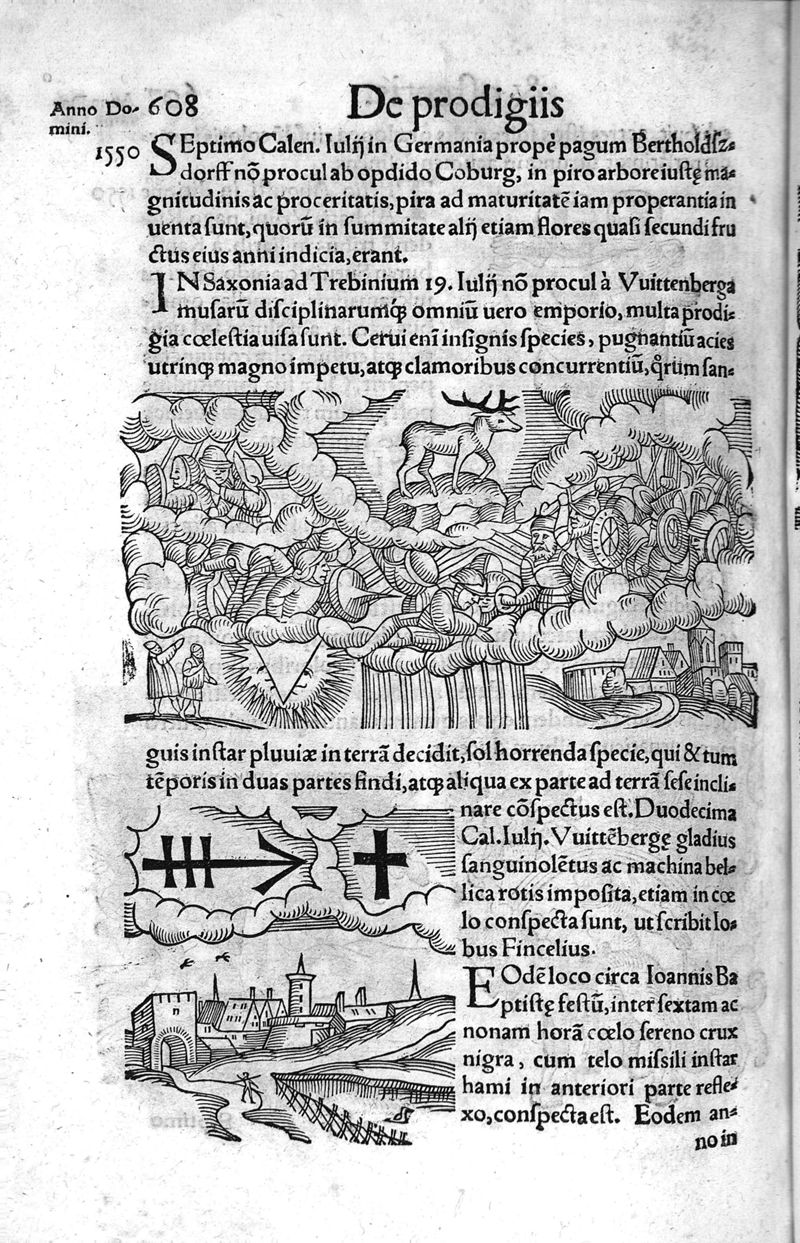 Anno Do- 608 De prodigiis
mini.
1550 SEptimo Calen. Iulij in Germania propè pagum Bertholdsz-
dorff nõ procul ab opdido Coburg, in piro arbore iustę mа-
gnitudinis ac proceritatis, pira ad maturitatẽ iam properantia in
uenta sunt, quorũ in summitate alij etiam flores quasi secundi fru
ctus eius anni indicia, erant.
IN Saxonia ad Trebinium 19. Iulij nõ procul à Vuittenberga
musarũ disciplinarumq́; omniũ uero emporio, multa prodi-
gia cœlestia uisa sunt. Cerui enĩ insignis species, pugnantiũ acies
utrinq; magno impetu, atq; clamoribus concurrentiũ, qr̃um san-
guis instar pluuiæ in terrã decidit, sol horrenda specie, qui & tum
tẽporis in duas partes findi, atq; aliqua ex parte ad terrã sese incli-
nare cõspectus est. Duodecima
Cal. Iulij. Vuittẽbergę gladius
sanguinolẽtus ac machina bel-
lica rotis imposita, etiam in cœ
lo conspecta sunt, ut scribit Io-
bus Fincelius.
EOdẽ loco circa Ioannis Ba
ptistę festũ, inter sextam ac
nonam horã cœlo sereno crux
nigra, cum telo missili instar
hami in anteriori parte refle-
xo, conspecta est. Eodem an-
no in